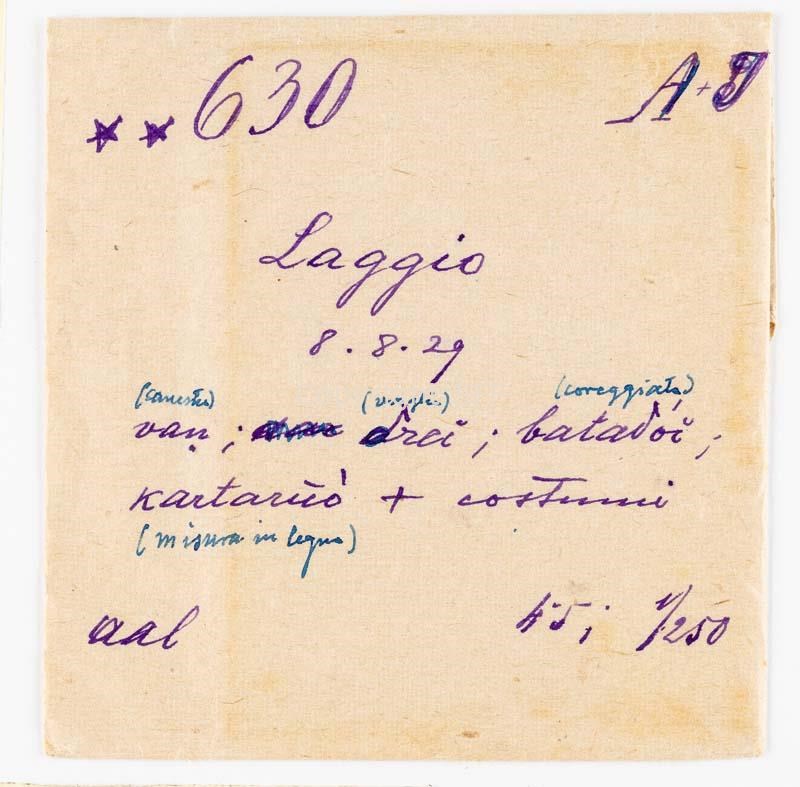 ** 630 A+J
Laggio
8.8.29
(canestro) (vaglio) (coreggiato)
vaṇ ; drei ; batadói ;
kartarüó + costumi
(misura in legno)
aal 4·5; 1/250